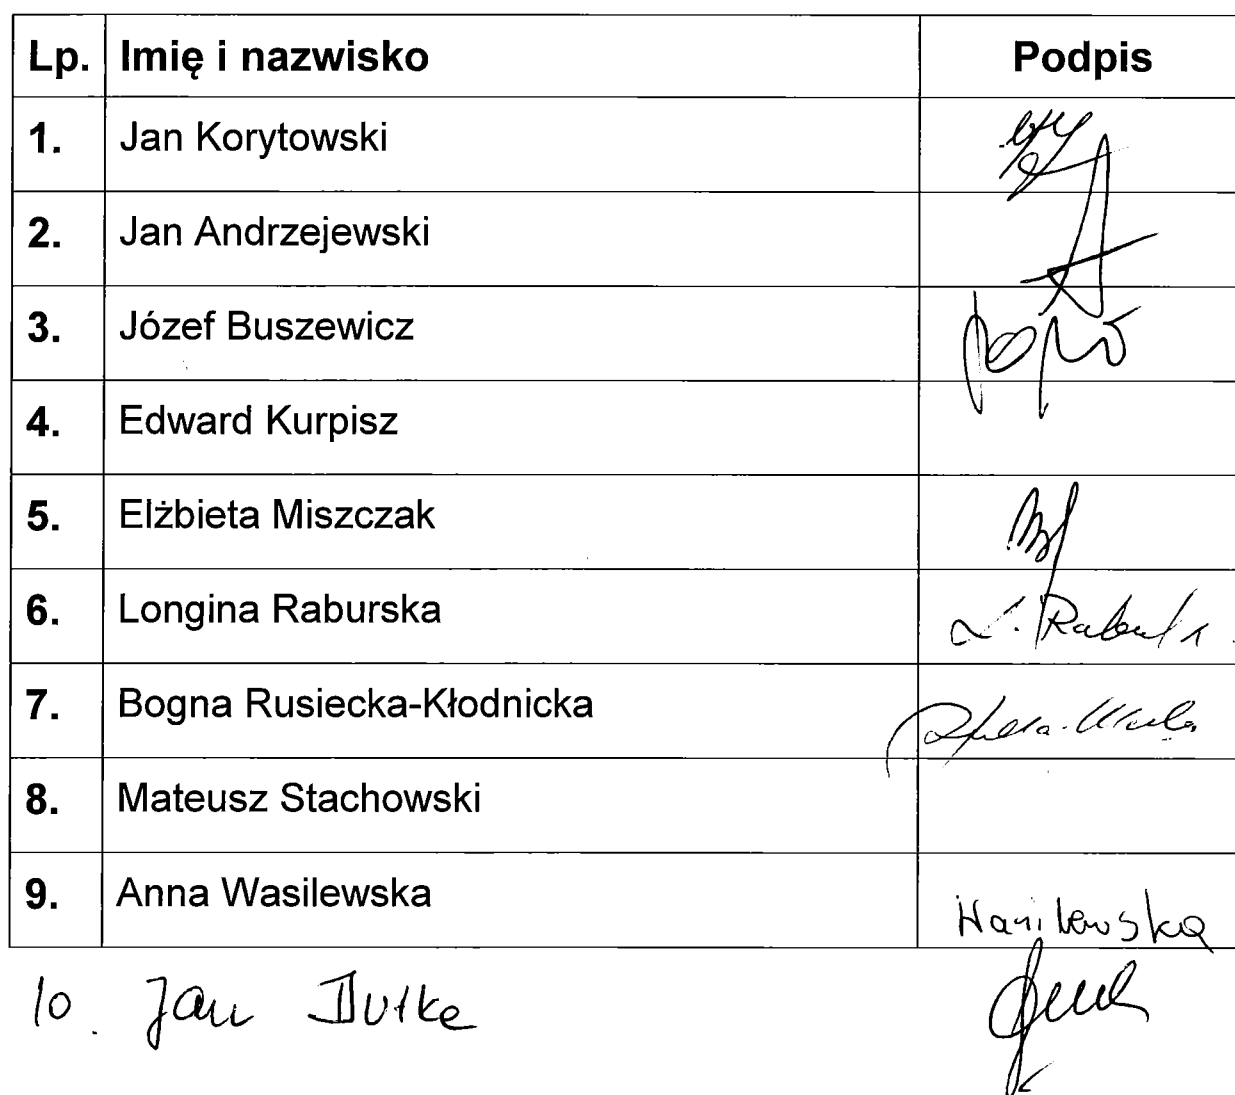 Lp. Imię i nazwisko Podpis
1. Jan Korytowski
2. Jan Andrzejewski
3. Józef Buszewicz
4. Edward Kurpisz
5. Elżbieta Miszczak
6. Longina Raburska L.
7. Bogna Rusiecka-Kłodnicka
8. Mateusz Stachowski
9. Anna Wasilewska Wasilewska
10. Jan